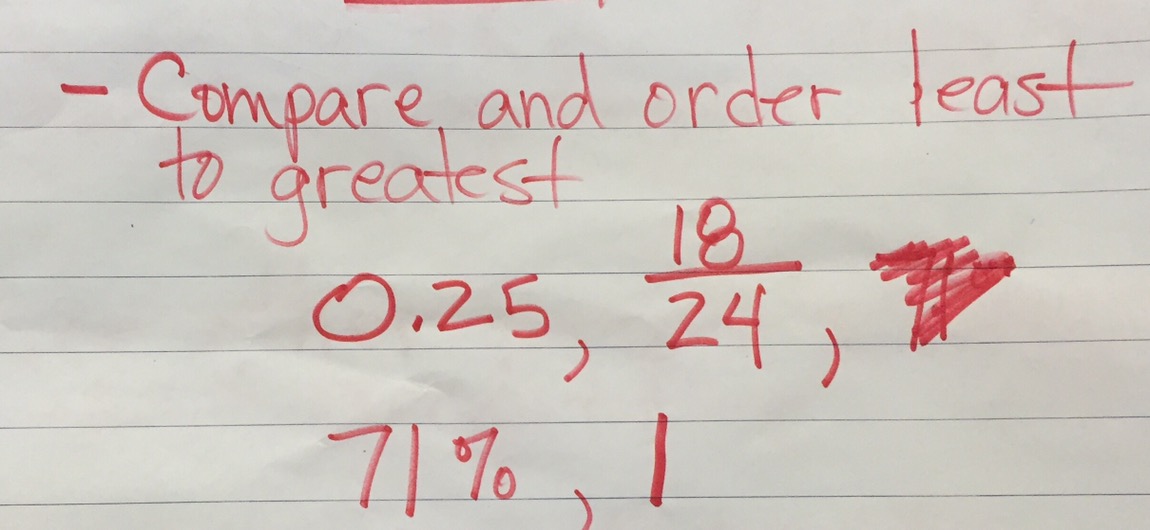 - Compare and order least
to greatest
0.25, 18/24,
71%, 1